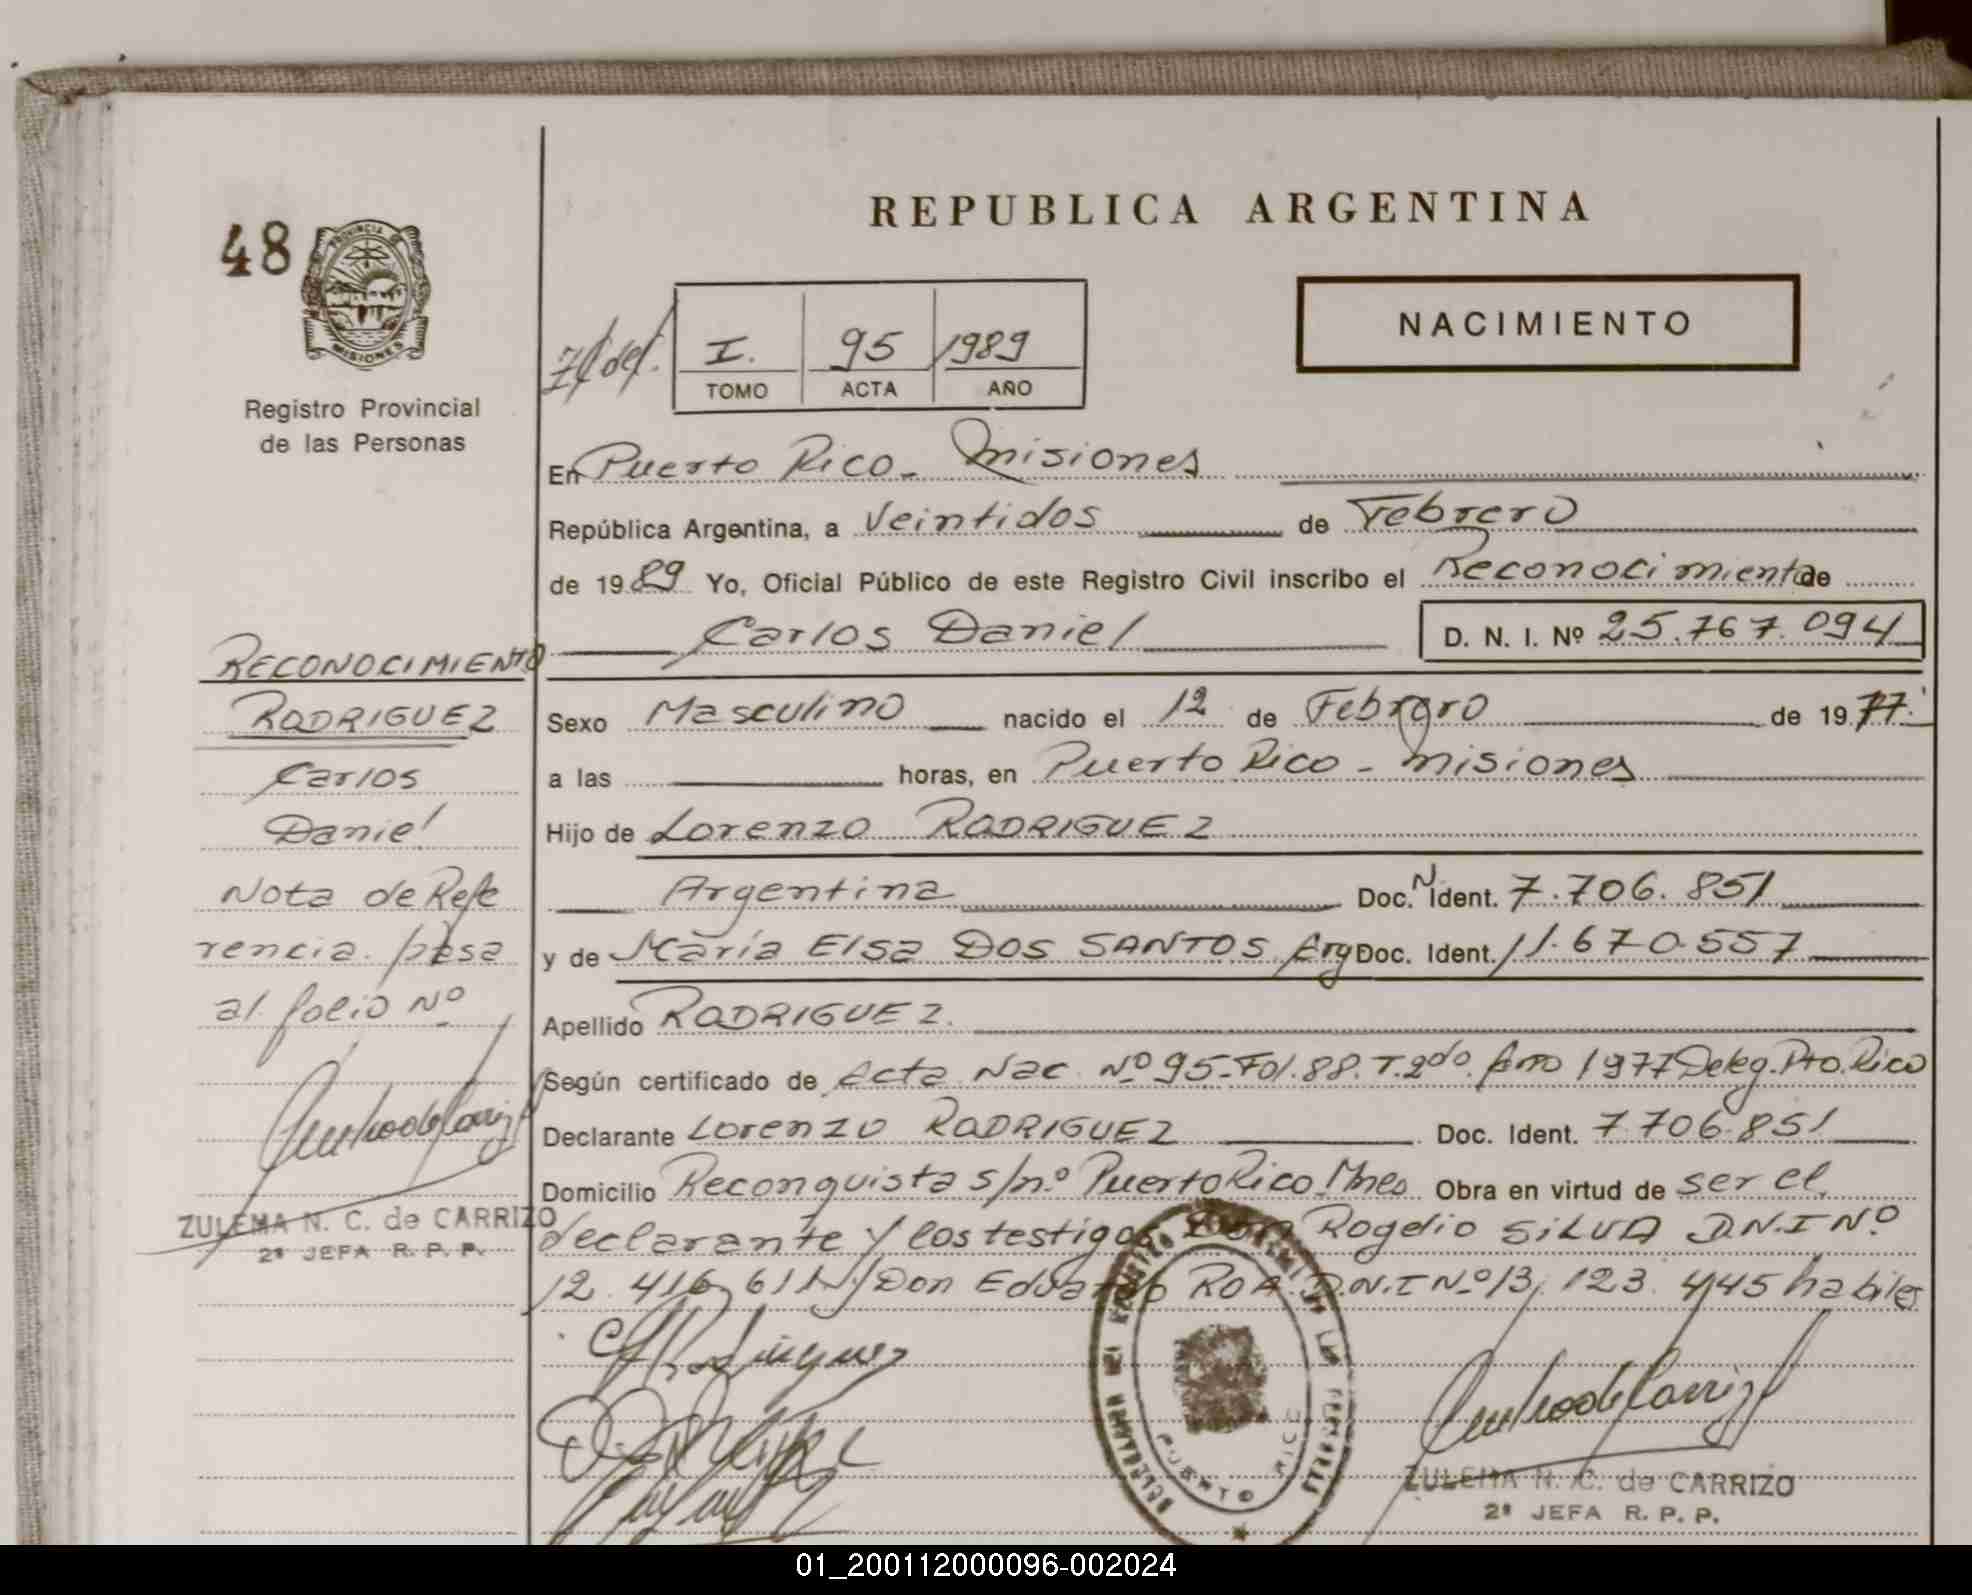 REPUBLICA ARGENTINA
48
PROVINCIA DE
MISIONES
Registro Provincial
de las Personas
NACIMIENTO
I. 95 1989
TOMO ACTA AÑO
En Puerto Rico - Misiones
República Argentina, a Veintidos de Febrero
de 1989 Yo, Oficial Público de este Registro Civil inscribo el Reconocimiento de
Carlos Daniel D. N. I. Nº 25.767.094
Sexo Masculino nacido el 12 de Febrero de 1977.
a las horas, en Puerto Rico - Misiones
Hijo de Lorenzo RODRIGUEZ
Argentina Doc. N Ident. 7.706.851
y de María Elsa DOS SANTOS Arg Doc. Ident. 11.670.557
Apellido RODRIGUEZ.
Según certificado de Acta Nac. Nº 95-Fol.88.T.2do. Año 1977 Deleg. Pto. Rico
Declarante Lorenzo RODRIGUEZ Doc. Ident. 7.706.851
Domicilio Reconquista s/nº Puerto Rico. Mnes Obra en virtud de ser el
declarante y los testigos Don Rogelio SILVA D.N.I Nº
12.416.611 y Don Eduardo ROA D.N.I Nº 13.123.445 habiles
RECONOCIMIENTO
RODRIGUEZ
Carlos
Daniel
Nota de Refe
rencia. pasa
al folio Nº
ZULEMA N. C. de CARRIZO
2ª JEFA R. P. P.
PUERTO RICO
ZULEMA N. C. de CARRIZO
2ª JEFA R. P. P.
01_200112000096-002024